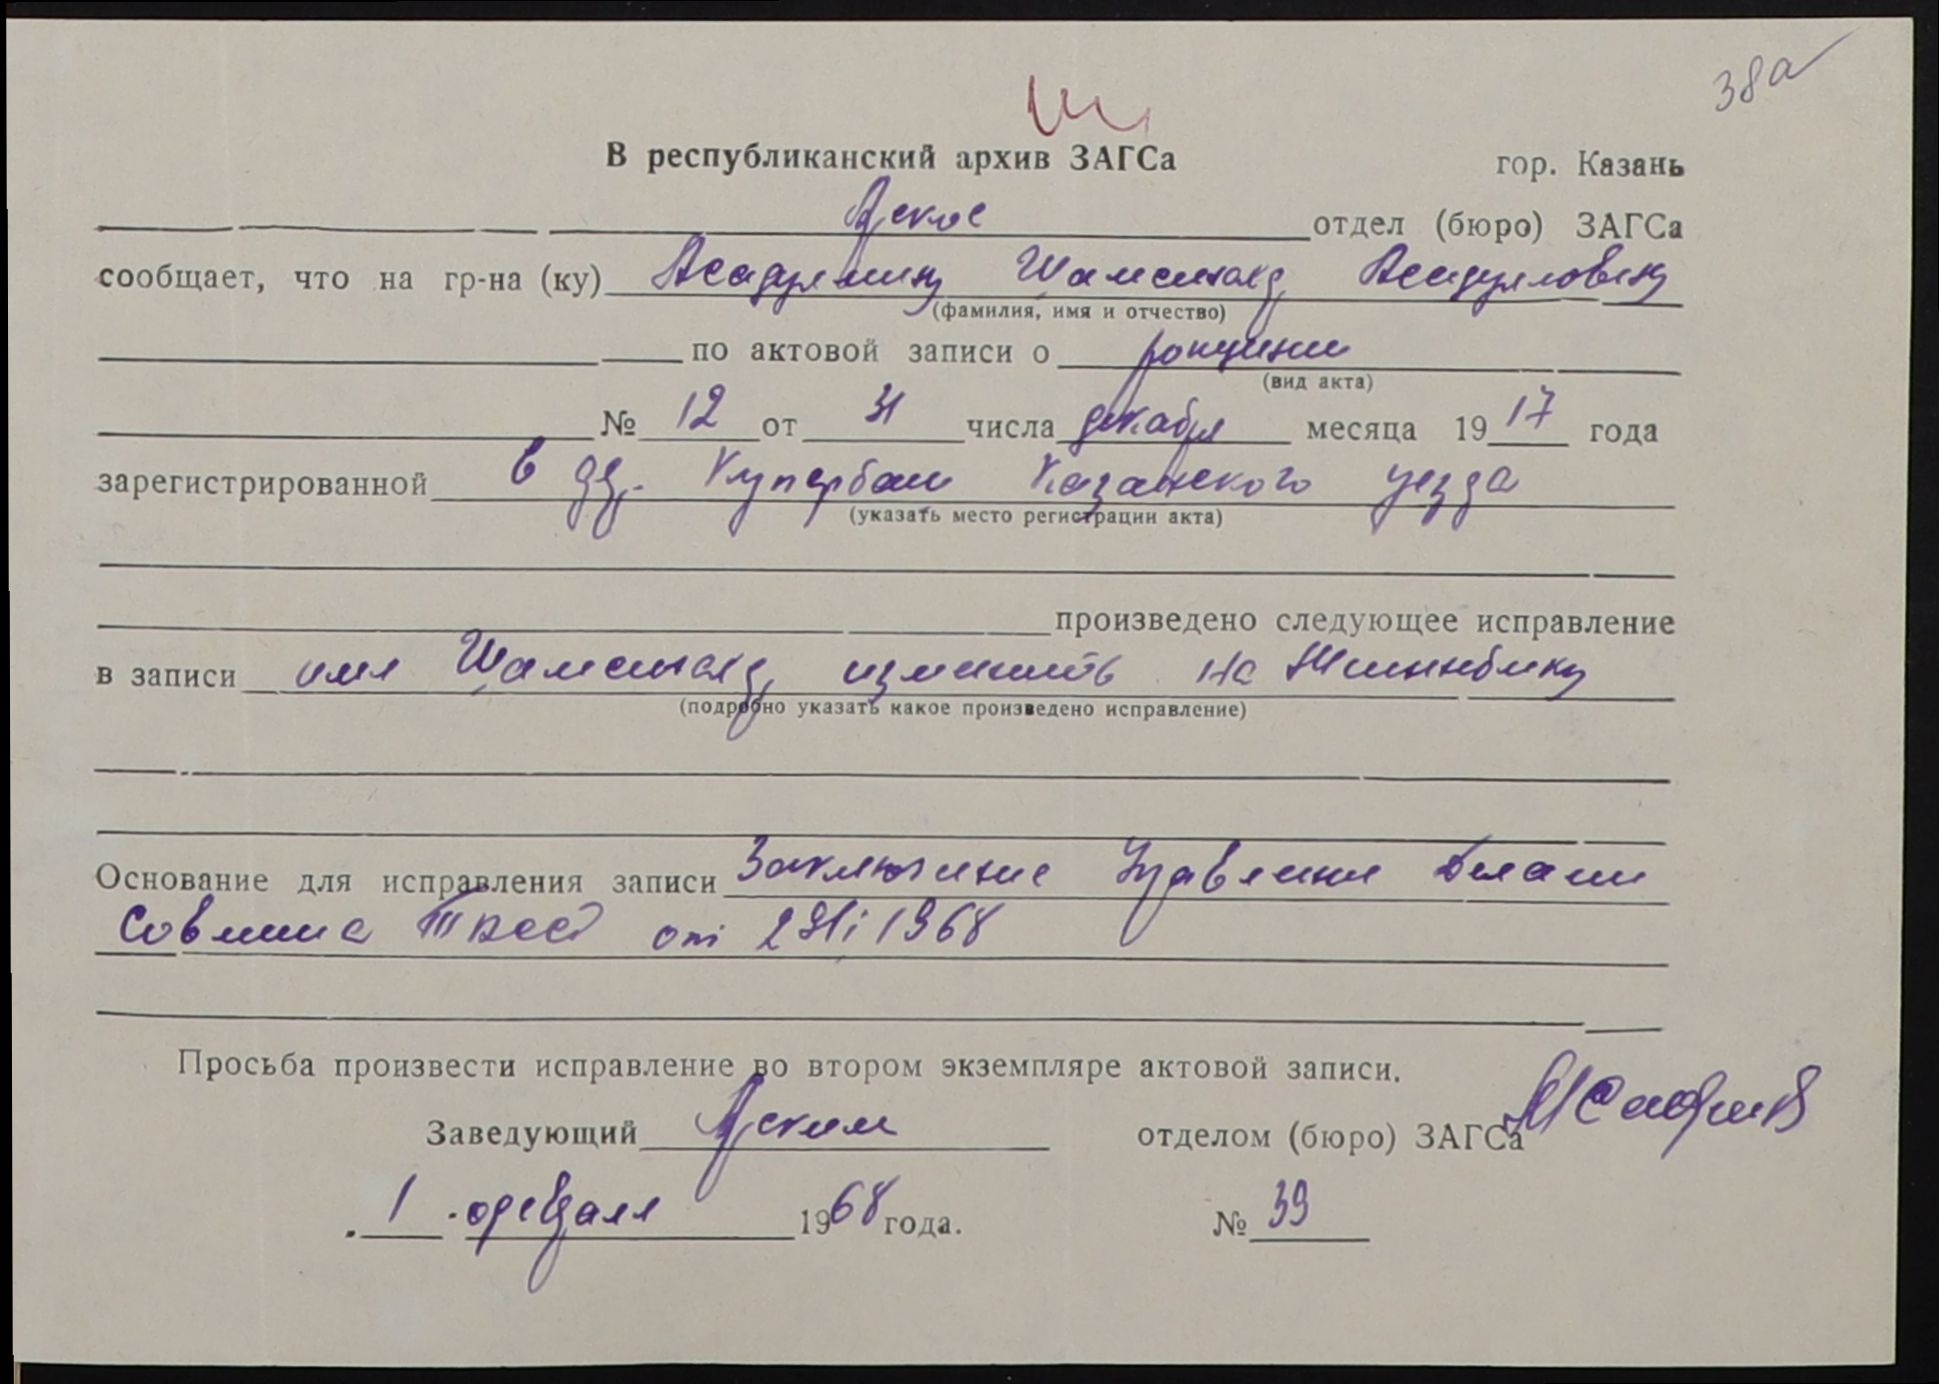 38а
В республиканский архив ЗАГСа гор. Казань
Арское отдел (бюро) ЗАГСа
сообщает, что на гр-на (ку) Асадуллину Шамсинахд Асадулловну
(фамилия, имя и отчество)
по актовой записи о рождении
(вид акта)
№ 12 от 31 числа декабря месяца 1917 года
зарегистрированной в дд. Купербаш Казанского уезда
(указать место регистрации акта)
произведено следующее исправление
в записи имя изменить на
(подробно указать какое произведено исправление)
Основание для исправления записи Заключение Управления Делами
Совмина ТАССР от 29/I 1968
Просьба произвести исправление во втором экземпляре актовой записи.
Заведующий Арским отделом (бюро) ЗАГСа
1 февраля 1968 года. № 39